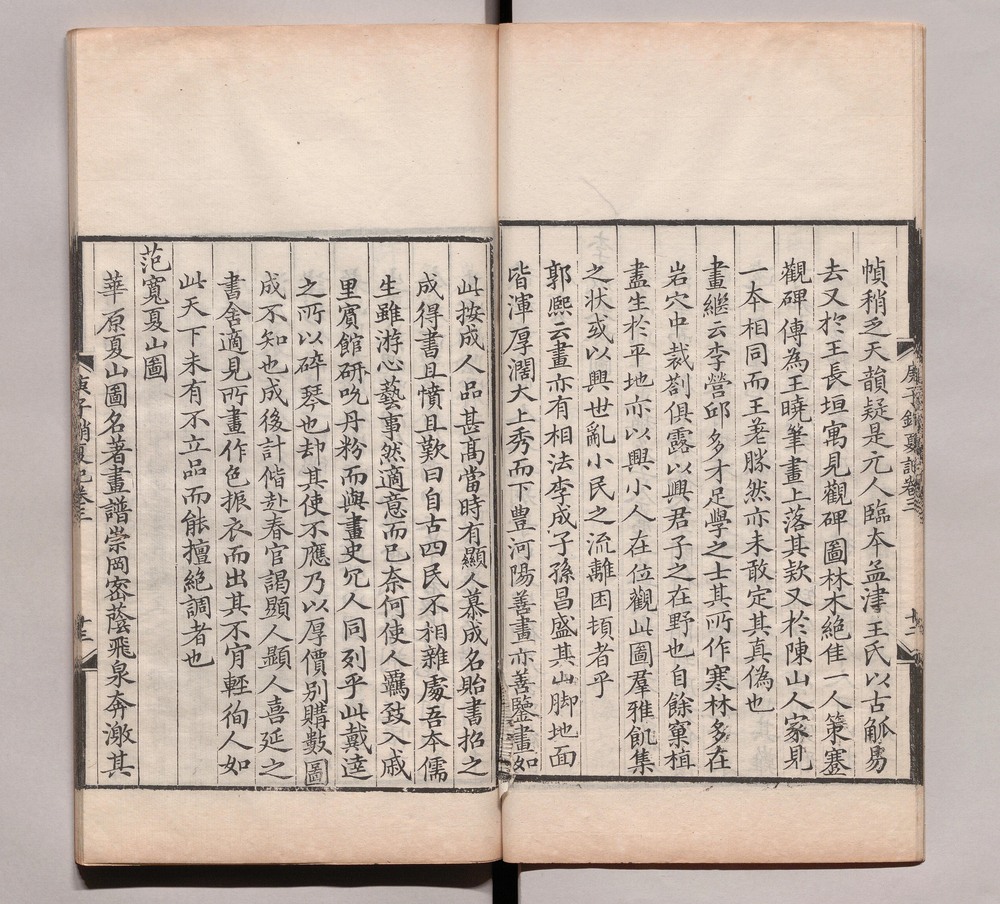 幀稍乏天韻疑是元人臨本孟津王氏以古觚易
去又於王長垣寓見觀碑圖林木絶佳一人策蹇
觀碑傳為王曉筆畫上落其欵又於陳山人家見
一本相同而王差勝然亦未敢定其真偽也
畫繼云李營邱多才足學之士其所作寒林多在
岩穴中裁劄俱露以興君子之在野也自餘窠植
盡生於平地亦以興小人在位觀此圖羣雅飢集
之状或以興世亂小民之流離困頓者乎
郭熙云畫亦有相法李成子孫昌盛其山脚地面
皆渾厚濶大上秀而下豊河陽善畫亦善鑒畫如
此按成人品甚髙當時有顯人慕成名貽書招之
成得書且憤且歎曰自古四民不相雜處吾本儒
生雖游心藝事然適意而已奈何使人羈致入戚
里賓館研吮丹粉而與畫史冗人同列乎此戴逵
之所以碎琴也却其使不應乃以厚價別購數圖
成不知也成後計偕赴春官謁顯人顯人喜延之
書舍適見所畫作色振衣而出其不肯輕徇人如
此天下未有不立品而能擅絶調者也
范寬夏山圖
華原夏山圖名著畫譜崇岡密蔭飛泉奔激其
庚子銷夏記卷三
十三